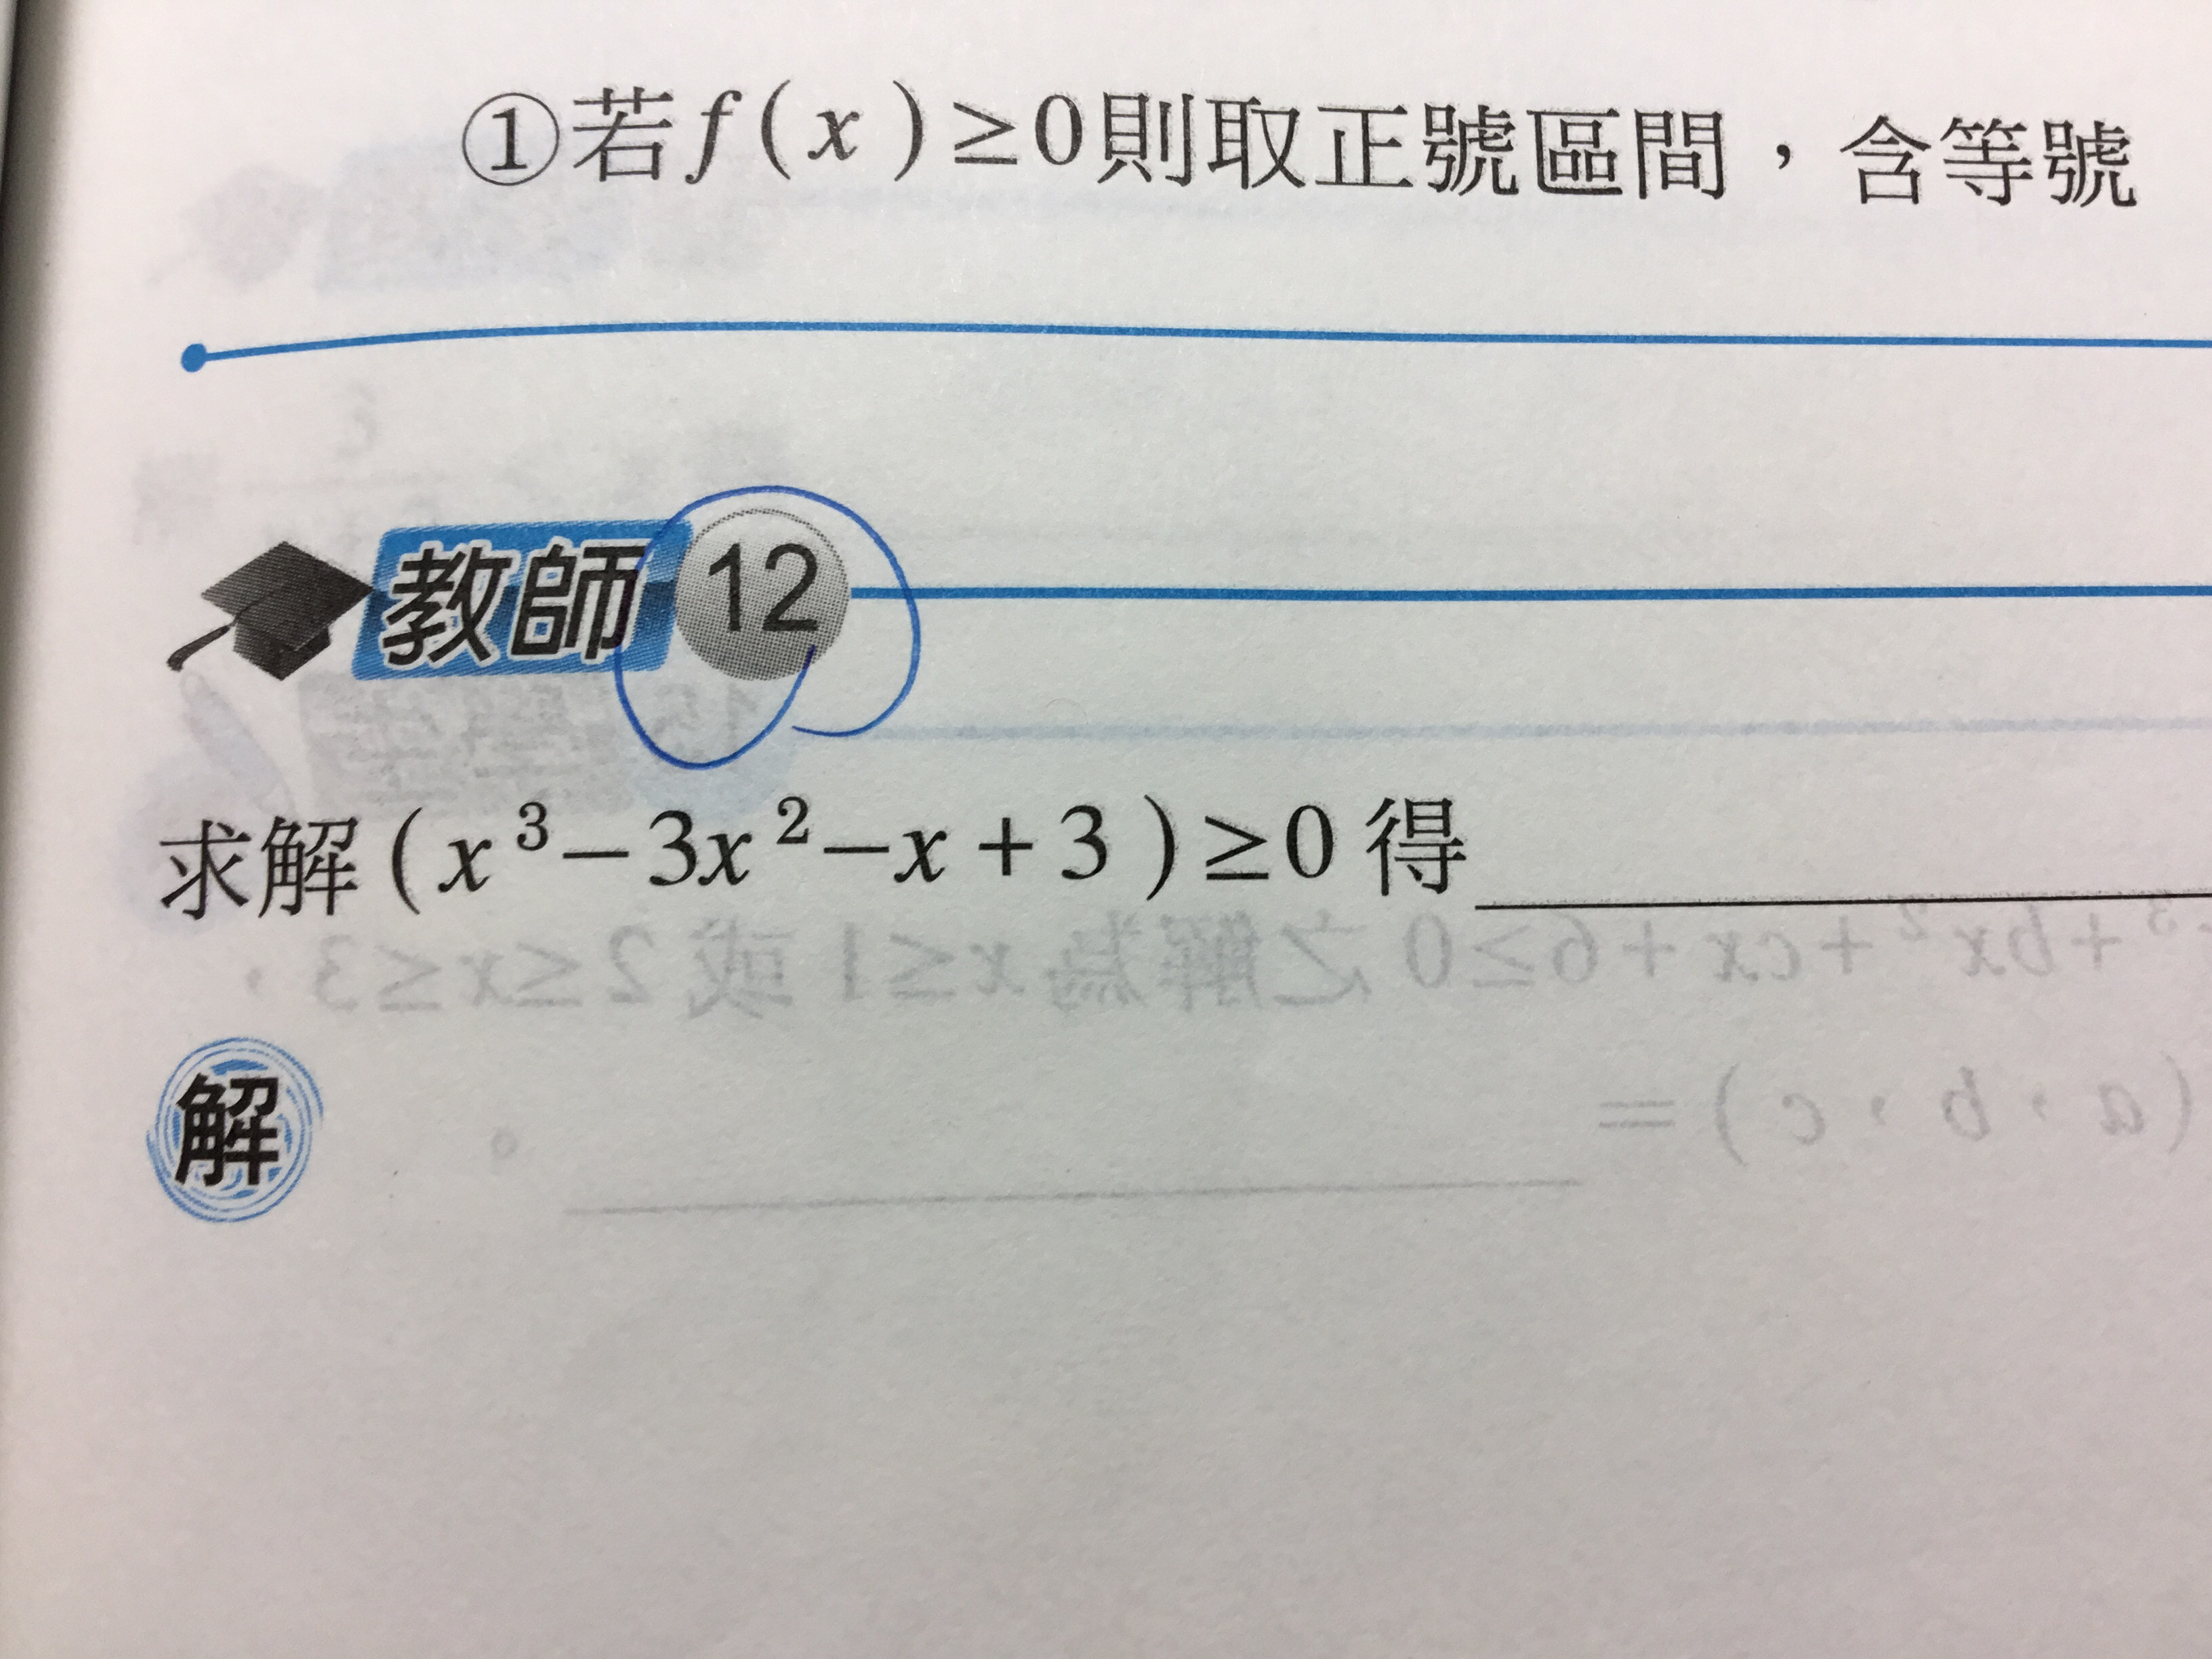 ①若f(x)≥0則取正號區間，含等號
教師 12
求解(x³−3x²−x+3)≥0 得
解